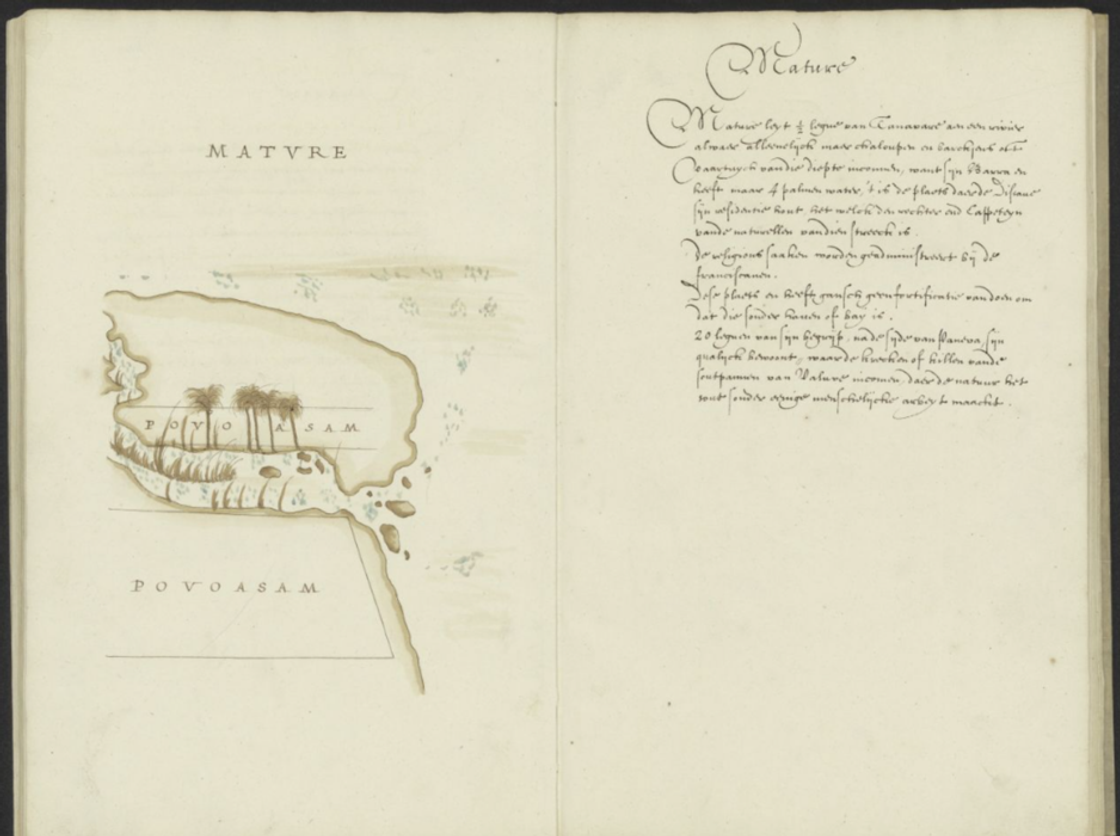 MATVRE
POVOASAM
POVOASAM
Mature
Mature leyt ½ legue van Canavare aen een rivier
alwaer alleenelijck maer chaloupen en barckjens oft
vaertuych van die diepte incomen, want sijn Barra en
heeft maer 4 palmen water, 't is de plaets daer de Disave
sijn residentie hout, het welck den rechter end Cappeteyn
vande naturellen van dien streeck is.
De religious saaken worden geadministreert bij de
franciscanen.
Dese plaets en heeft gansch geen fortificatie van doen om
dat die sonder haven of bay is.
20 leguen van sijn begrijp, na de sijde van Paneva, sijn
qualijck bewoont, waer de kreecken of killen vande
soutpannen van Valuve incomen, daer de natuur het
sout sonder eenige menschelijcke arbeyt maackt.